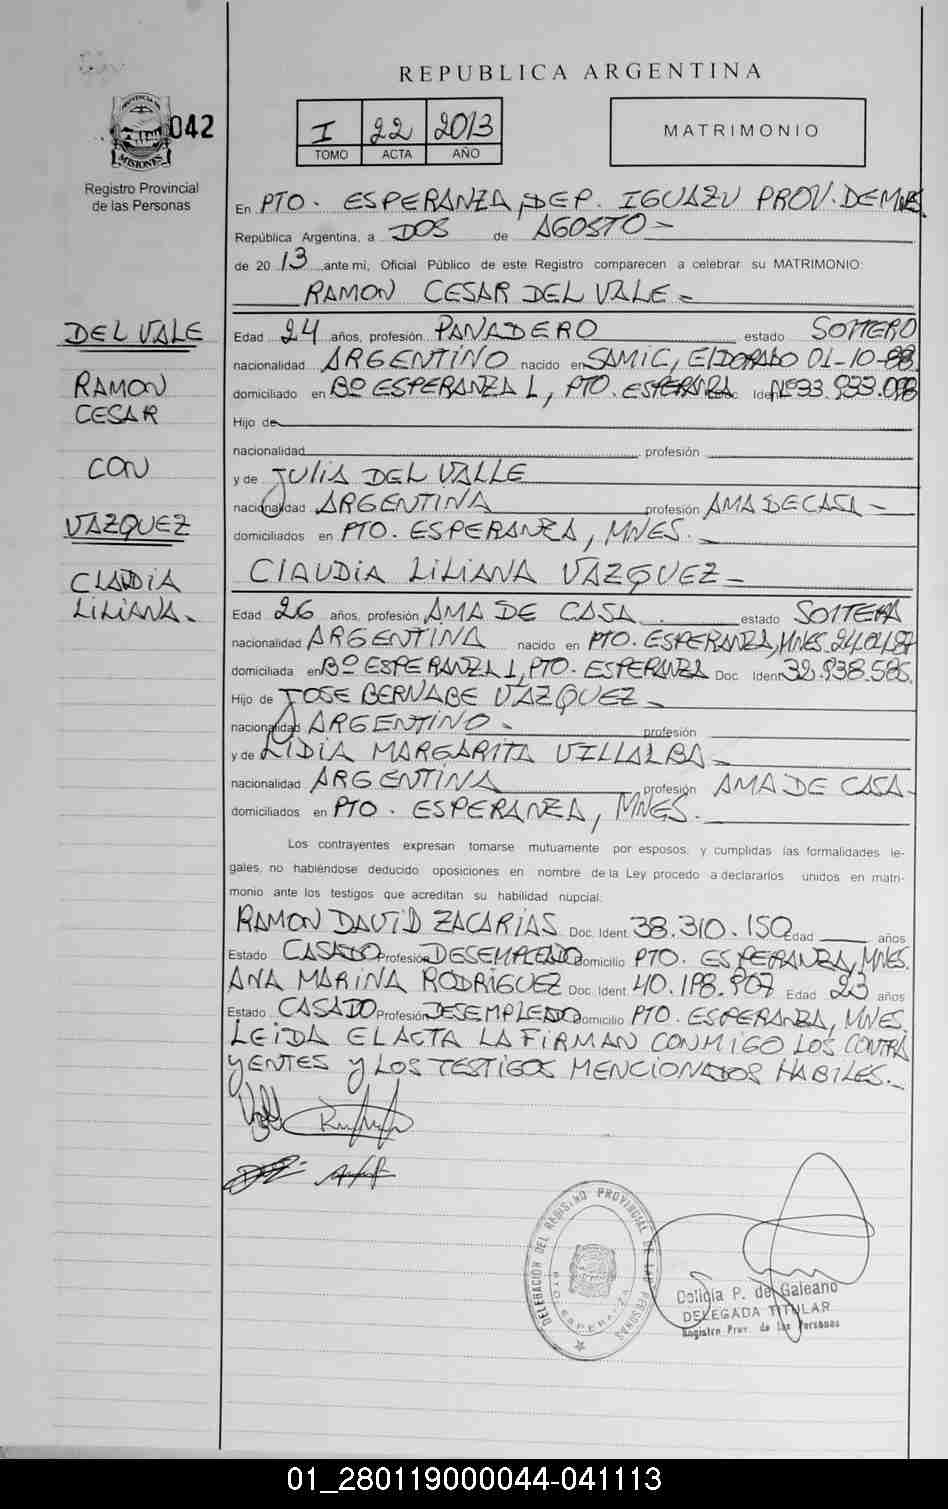 REPUBLICA ARGENTINA
PROVINCIA DE
MISIONES
042
Registro Provincial
de las Personas
I 22 2013
TOMO ACTA AÑO
MATRIMONIO
En PTO. ESPERANZA, DEP. IGUAZU PROV. DE MNES.
República Argentina, a DOS de AGOSTO
de 2013 ante mi, Oficial Público de este Registro comparecen a celebrar su MATRIMONIO:
RAMON CESAR DEL VALE
DEL VALE
RAMON
CESAR
CON
VAZQUEZ
CLAUDIA
LILIANA.
Edad 24 años, profesión PANADERO estado SOLTERO
nacionalidad ARGENTINO nacido en SAMIC, ElDORADO 01-10-88
domiciliado en Bº ESPERANZA 1, PTO. ESPERANZA Doc. Ident Nº 33.933.098
Hijo de
nacionalidad profesión
y de JULIA DEL VALLE
nacionalidad ARGENTINA profesión AMA DE CASA
domiciliados en PTO. ESPERANZA, MNES.
ClAUDIA LILIANA VAZQUEZ
Edad 26 años, profesión AMA DE CASA estado SOLTERA
nacionalidad ARGENTINA nacido en PTO. ESPERANZA, MNES.
domiciliada en Bº ESPERANZA 1, PTO. ESPERANZA Doc. Ident 32.938.585
Hijo de JOSE BERNABE VAZQUEZ
nacionalidad ARGENTINO. profesión
y de LIDIA MARGARITA VILLALBA
nacionalidad ARGENTINA profesión AMA DE CASA
domiciliados en PTO. ESPERANZA, MNES.
Los contrayentes expresan tomarse mutuamente por esposos, y cumplidas las formalidades le-
gales, no habiéndose deducido oposiciones en nombre de la Ley procedo a declararlos unidos en matri-
monio ante los testigos que acreditan su habilidad nupcial:
RAMON DAVID ZACARIAS Doc. Ident. 38.310.150 Edad años
Estado CASADO Profesión DESEMPLEADO Domicilio PTO. ESPERANZA, MNES.
ANA MARINA RODRIGUEZ Doc. Ident. 40.198.907 Edad 23 años
Estado CASADO Profesión DESEMPLEADO Domicilio PTO. ESPERANZA, MNES.
LEIDA EL ACTA LA FIRMAN CONMIGO LOS CONTRA
YENTES Y LOS TESTIGOS MENCIONADOS HABILES.
DELEGACION DEL REGISTRO PROVINCIAL DE LAS PERSONAS
PTO. ESPERANZA
Delicia P. de Galeano
DELEGADA TITULAR
Registro Prov. de las Personas
01_280119000044-041113